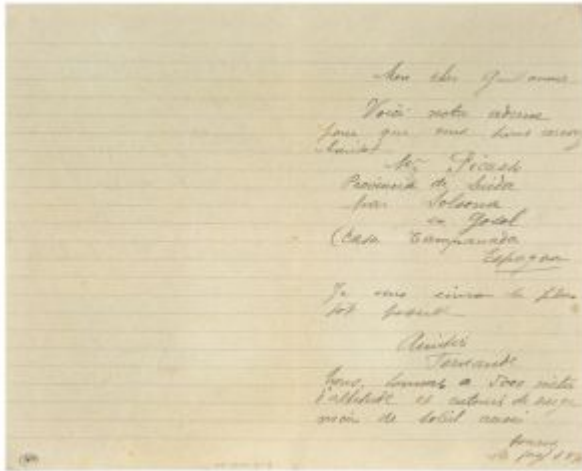 Mon cher Guillaume
Voici notre adresse
pour que vous nous
Mr. Picasso
Provincia de Lérida
par Solsona
en Gosol
(Casa Tampanada
Espagne
Je vous écrirai le plus
tôt
Amitiés
Fernande
Nous sommes à 5000 mètres
d'altitude et entourés de neige
de soleil aussi